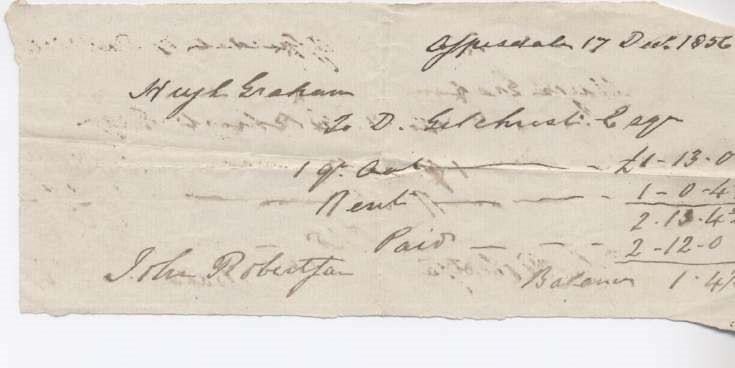 Ospisdale 17 Dec. 1856
Hugh Graham
To D. Gilchrist Esqr
1 qr. Oat £1-13-0
Rent 1-0-4½
2.13.4½
Paid 2-12-0
John Robertson
Balance 1.4½